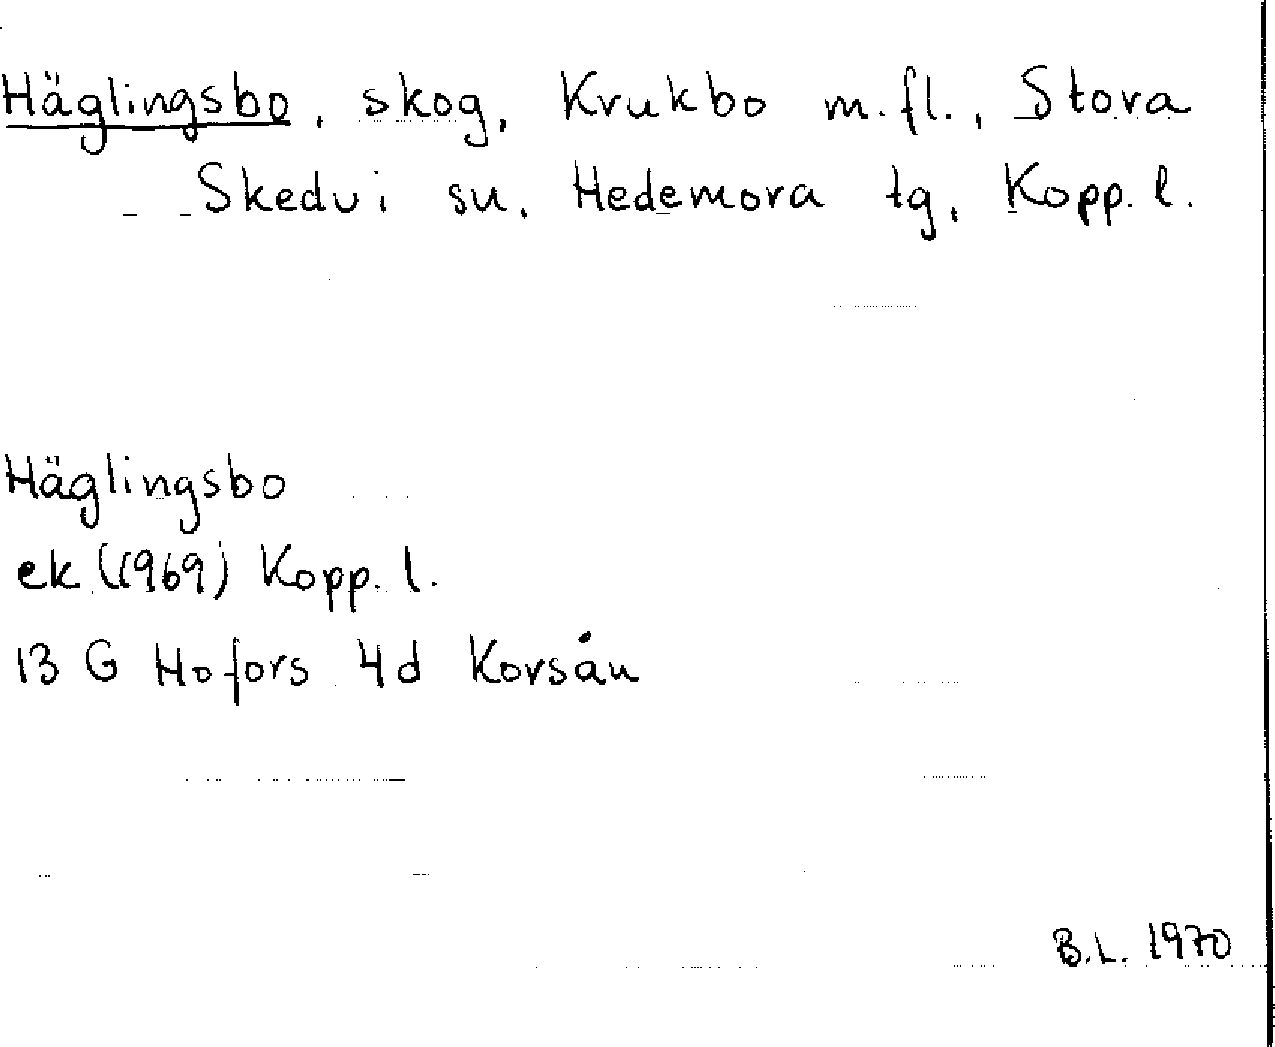 Häglingsbo, skog, Krukbo m.fl., Stora
Skedvi sn, Hedemora tg, Kopp. l.
Häglingsbo
ek (1969) Kopp. l.
13 G Hofors 4d Korsån
B.L. 1970